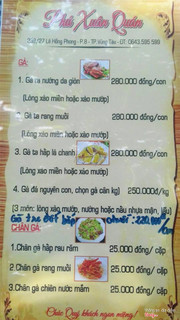 Thái Xuân Quán
Lê Hồng Phong - P.8 - TP.Vũng Tàu - ĐT: 0643 595 599
GÀ:
1. Gà ra nướng da giòn 280.000 đồng/con
(Lòng xáo miến hoặc xáo mướp)
2. Gà ta rang muối 280.000 đồng/con
(Lòng xáo miến hoặc xáo mướp)
3. Gà ta hấp lá chanh 280.000 đồng/con
(Lòng xáo miến hoặc xáo mướp)
4. Gà đá nguyên con, chọn gà cân kg) 250.000đ/kg
(3 món: lòng xáo mướp, nướng hoặc nấu nhựa mận, lẩu)
Gà tre 220.000/con
CHÂN GÀ:
1.Chân gà hấp rau răm 25.000 đồng/ cặp
2.Chân gà rang muối 25.000 đồng/ cặp
3.Chân gà chiên nước mắm 25.000 đồng/ cặp
Chúc Quý khách ngon miệng!